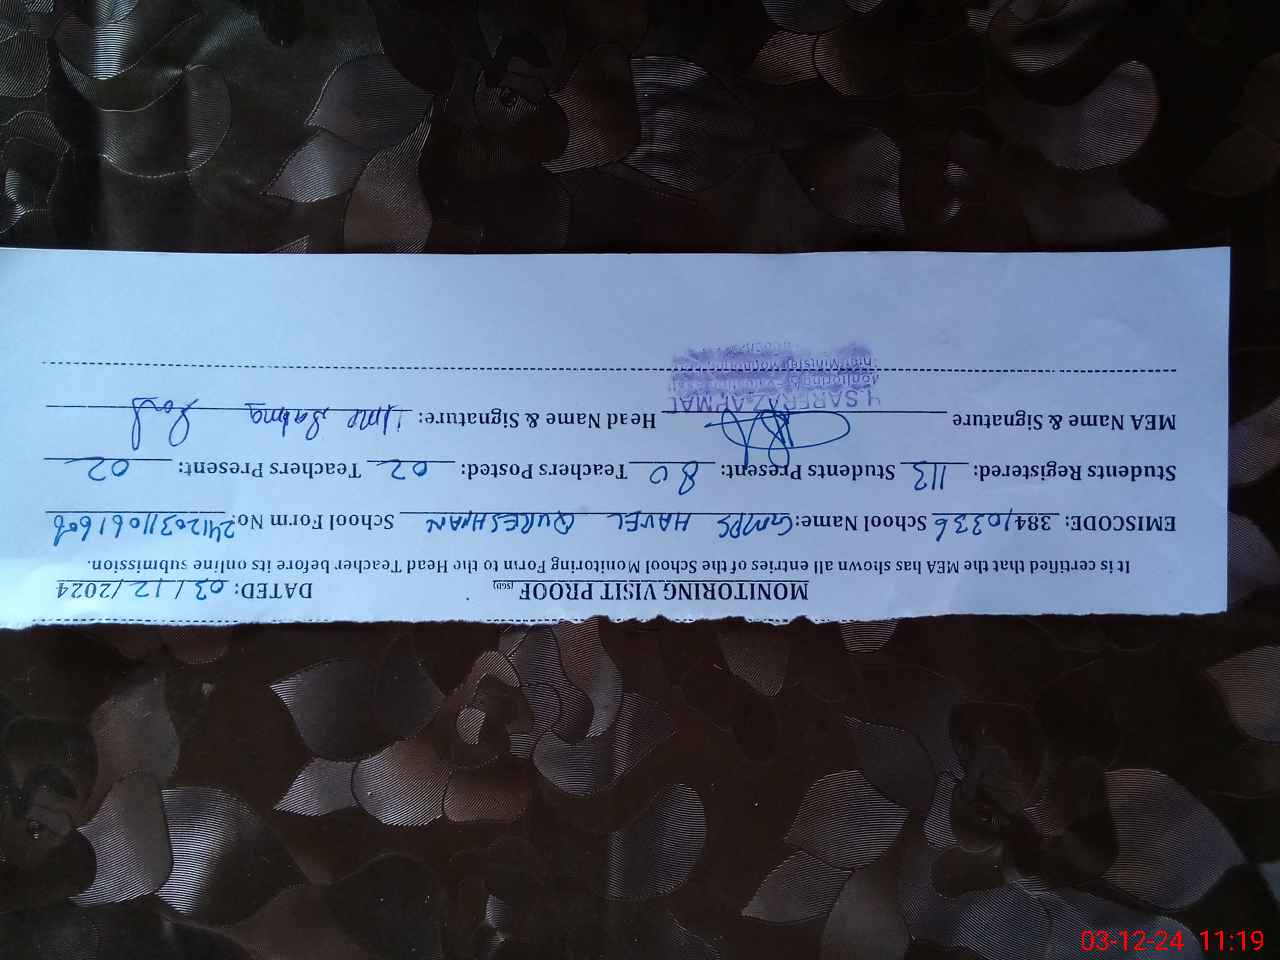 MONITORING VISIT PROOF (SED) DATED: 03/12/2024
It is certified that the MEA has shown all entries of the School Monitoring Form to the Head Teacher before its online submission.
EMISCODE: 38410336 School Name: GMPS HAVEL QURESHIAN School Form No: 
Students Registered: 113 Students Present: 80 Teachers Posted: 02 Teachers Present: 02
MEA Name & Signature Head Name & Signature: Ume Salma
SARFRAZ AHMAD
Monitoring & Evaluation
03-12-24 11:19